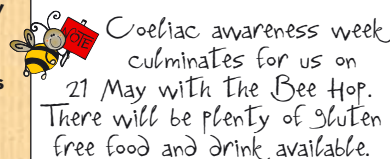 VOTE
Coeliac awareness week
culminates for us on
21 May with the Bee Hop.
There will be plenty of gluten
free food and drink available.